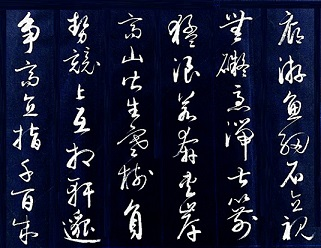 底游魚細石直視
無礙急湍甚箭
猛浪若奔夾岸
高山皆生寒樹負
勢競上互相軒邈
争高直指千百成